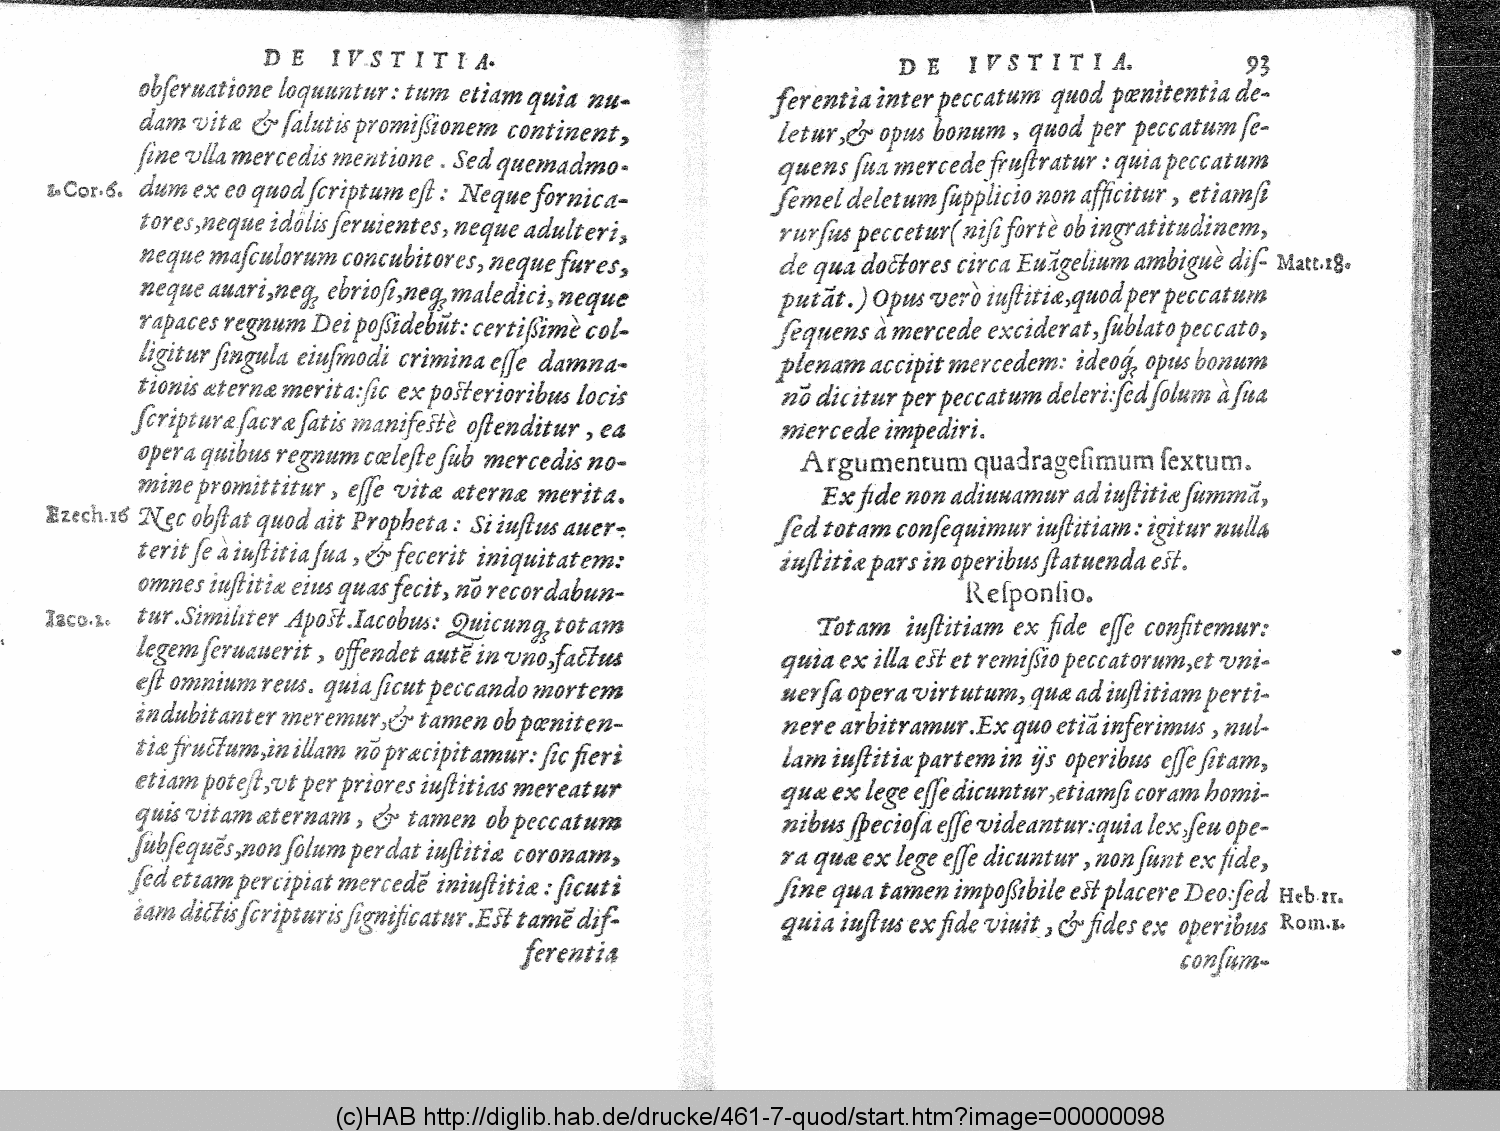 DE IVSTITIA.
obſeruatione loquuntur: tum etiam quia nu-
dam vitæ & ſalutis promiſſionem continent,
ſine vlla mercedis mentione. Sed quemadmo-
1.Cor.6. dum ex eo quod ſcriptum eſt: Neque fornica-
tores, neque idolis ſeruientes, neque adulteri,
neque maſculorum concubitores, neque fures,
neque auari, neq; ebrioſi, neq; maledici, neque
rapaces regnum Dei poſſidebūt: certiſſimè col-
ligitur ſingula eiuſmodi crimina eſſe damna-
tionis æternæ merita: ſic ex poſterioribus locis
ſcripturæ ſacræ ſatis manifeſtè oſtenditur, ea
opera quibus regnum cœleſte ſub mercedis no-
mine promittitur, eſſe vitæ æternæ merita.
Ezech.16 Nec obſtat quod ait Propheta: Si iuſtus auer-
terit ſe à iuſtitia ſua, & fecerit iniquitatem:
omnes iuſtitiæ eius quas fecit, nō recordabun-
Iaco.2. tur. Similiter Apoſt. Iacobus: Quicunq; totam
legem ſeruauerit, offendet autē in vno, factus
eſt omnium reus. quia ſicut peccando mortem
indubitanter meremur, & tamen ob pœniten-
tiæ fructum, in illam nō præcipitamur: ſic fieri
etiam poteſt, vt per priores iuſtitias mereatur
quis vitam æternam, & tamen ob peccatum
ſubſequēs, non ſolum perdat iuſtitiæ coronam,
ſed etiam percipiat mercedē iniuſtitiæ: ſicuti
iam dictis ſcripturis ſignificatur. Eſt tamē dif-
ferentia
DE IVSTITIA. 93
ferentia inter peccatum quod pœnitentia de-
letur, & opus bonum, quod per peccatum ſe-
quens ſua mercede fruſtratur: quia peccatum
ſemel deletum ſupplicio non afficitur, etiamſi
rurſus peccetur (niſi fortè ob ingratitudinem,
de qua doctores circa Euāgelium ambiguè diſ- Matt.18.
putāt.) Opus verò iuſtitiæ, quod per peccatum
ſequens à mercede exciderat, ſublato peccato,
plenam accipit mercedem: ideoq́; opus bonum
nō dicitur per peccatum deleri: ſed ſolum à ſua
mercede impediri.
Argumentum quadrageſimum ſextum.
Ex fide non adiuuamur ad iuſtitiæ ſummā,
ſed totam conſequimur iuſtitiam: igitur nulla
iuſtitiæ pars in operibus ſtatuenda eſt.
Reſponſio.
Totam iuſtitiam ex fide eſſe confitemur:
quia ex illa eſt et remiſſio peccatorum, et vni-
uerſa opera virtutum, quæ ad iuſtitiam perti-
nere arbitramur. Ex quo etiā inferimus, nul-
lam iuſtitiæ partem in ijs operibus eſſe ſitam,
quæ ex lege eſſe dicuntur, etiamſi coram homi-
nibus ſpecioſa eſſe videantur: quia lex, ſeu ope-
ra quæ ex lege eſſe dicuntur, non ſunt ex fide,
ſine qua tamen impoſſibile eſt placere Deo: ſed Heb.11.
quia iuſtus ex fide viuit, & fides ex operibus Rom.1.
conſum-
(c)HAB http://diglib.hab.de/drucke/461-7-quod/start.htm?image=00000098